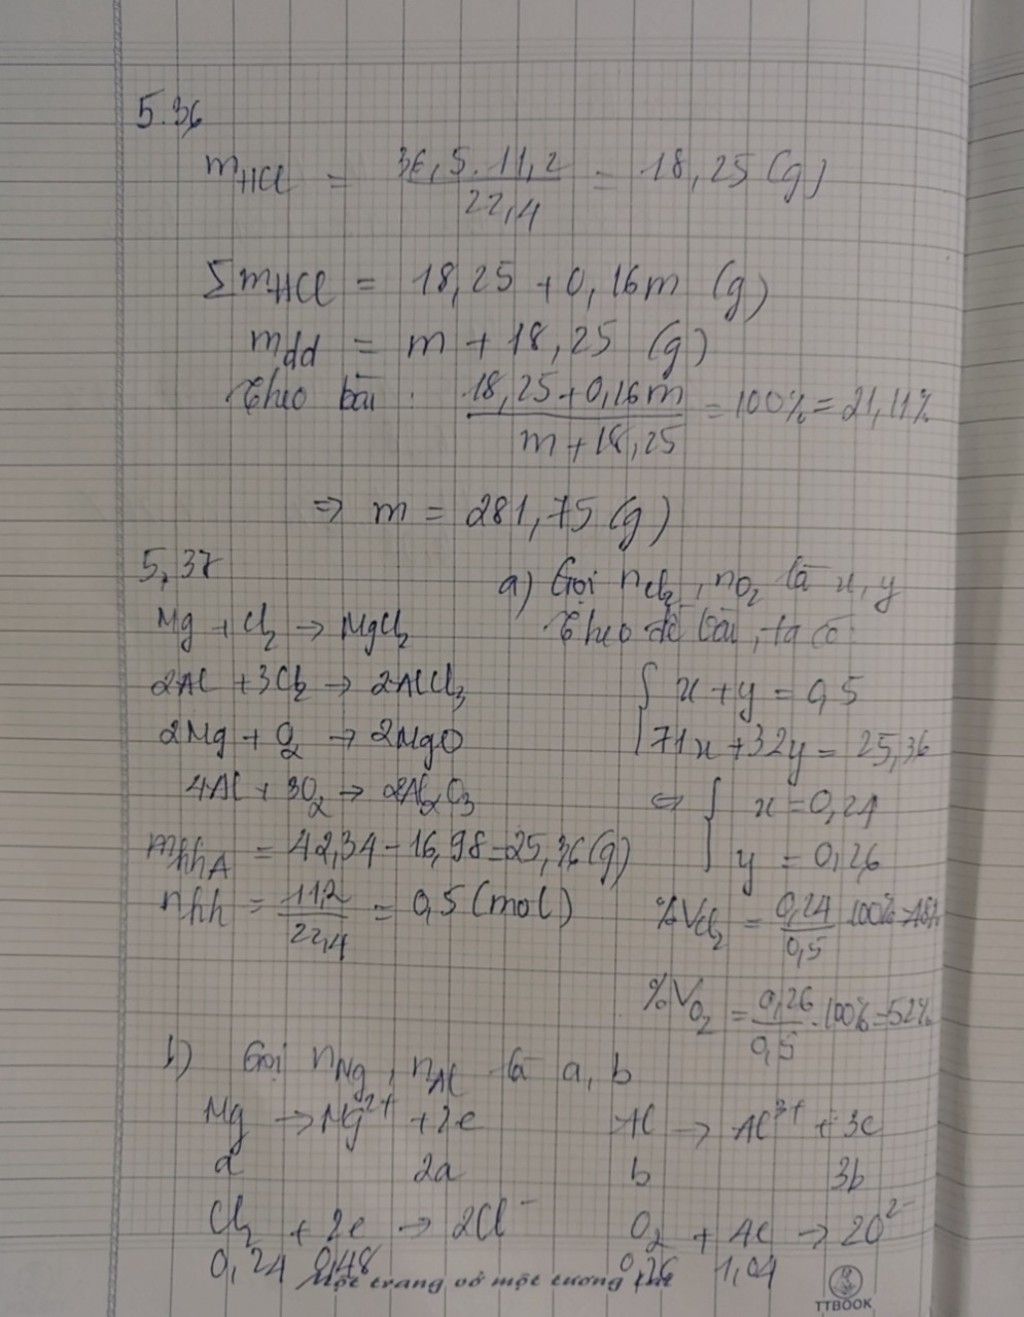 5.36
mHCl = 36,5.11,2/22,4 = 18,25 (g)
ΣmHCl = 18,25 + 0,16m (g)
mdd = m + 18,25 (g)
Theo bài : (18,25 + 0,16m)/(m + 18,25) = 100% = 21,11%
⇒ m = 281,75 (g)
5,37
Mg + Cl₂ → MgCl₂
2Al + 3Cl₂ → 2AlCl₃
2Mg + O₂ → 2MgO
4Al + 3O₂ → 2Al₂O₃
mhhA = 42,34 - 16,98 = 25,36 (g)
nhh = 11,2/22,4 = 0,5 (mol)
a) Gọi nCl₂, nO₂ là x, y
Theo đề bài, ta có:
{ x + y = 0,5
71x + 32y = 25,36
⇔ { x = 0,24
y = 0,26
%VCl₂ = 0,24/0,5 . 100% = 48%
%VO₂ = 0,26/0,5 . 100% = 52%
b) Gọi nMg, nAl là a, b
Mg → Mg²⁺ + 2e Al → Al³⁺ + 3e
a 2a b 3b
Cl₂ + 2e → 2Cl⁻ O₂ + 4e → 2O²⁻
0,24 0,48 0,26 1,04
Một trang vở một tương lai
TTBOOK